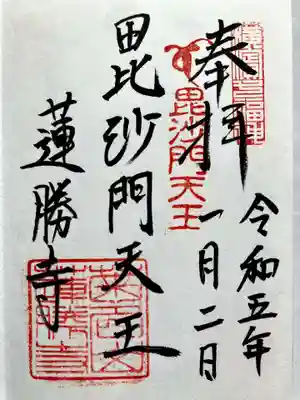 奉拝
令和五年
一月二日
毘沙門天王
毘沙門天王
蓮勝寺